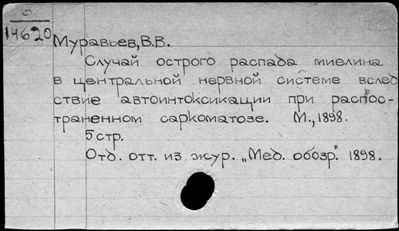 С
14620
Муравьев, В.В.
Случай острого распада миелина
в центральной нервной системе вслед
ствие автоинтоксикации при распос-
траненном саркоматозе. М., 1898.
5 стр.
Отд. отт. из жур. „Мед. обозр." 1898.